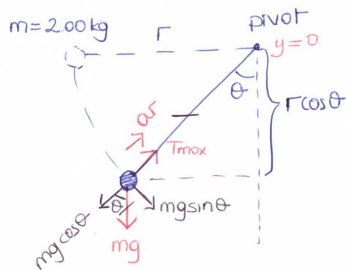 m=2.00kg
r
pivot
y=0
θ
rcosθ
ar
Tmax
θ
mgcosθ
mgsinθ
mg